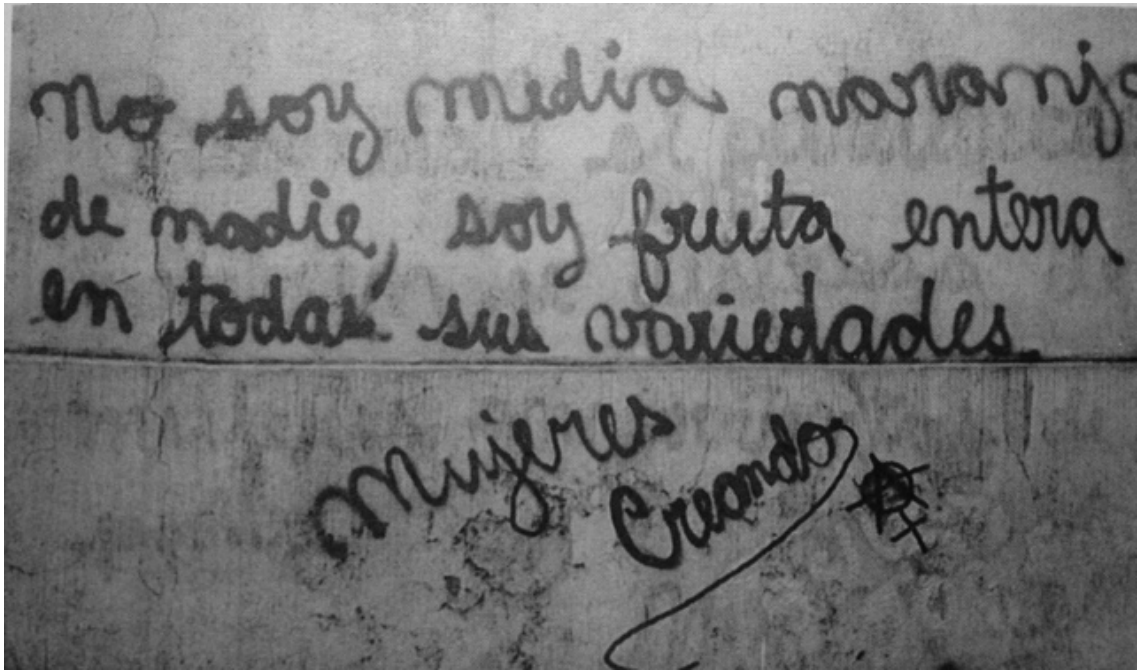 No soy media naranja
de nadie, soy fruta entera
en todas sus variedades.
Mujeres
Creando